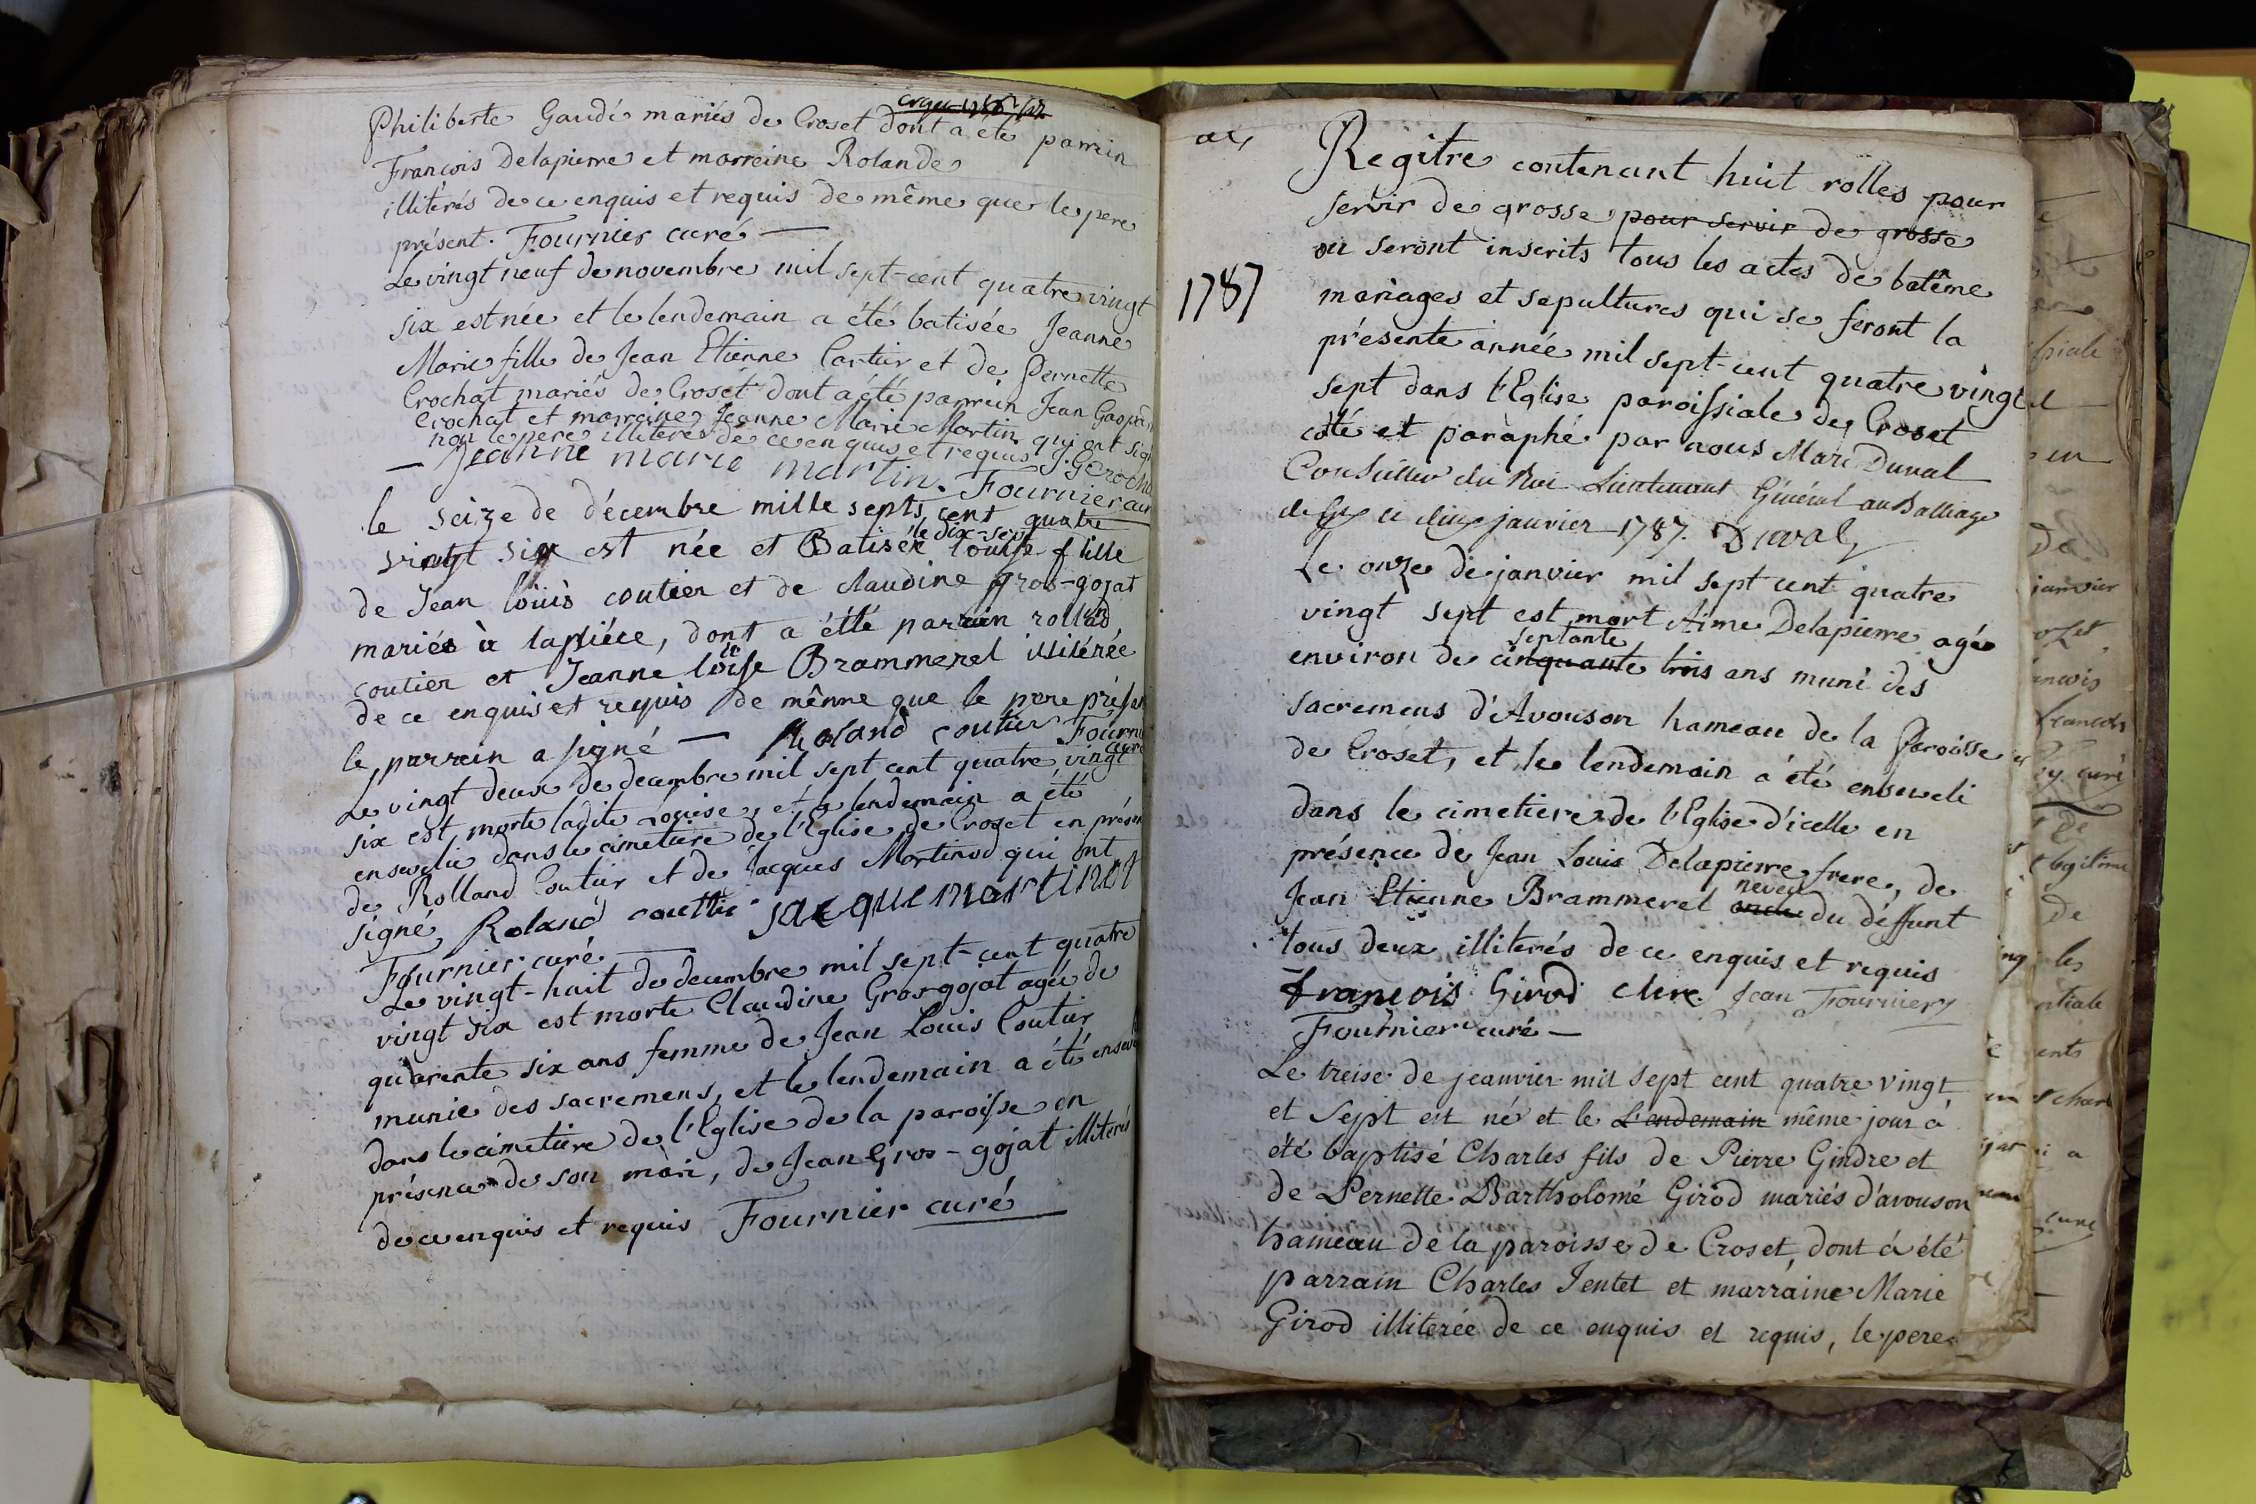 Philiberte Gaudé mariés de Croset dont a été parrein
François Delapierre et marreine Rolande
illiterés de ce enquis et requis de même que le pere
présent. Fournier curé —
Le vingt neuf de novembre mil sept-cent quatre vingt
six est née et le lendemain a été batisée Jeanne
Marie fille de Jean Etienne Cartier et de Pernette
Crochat mariés de Croset dont a été parrein Jean Gaspa
Crochat et marreine Jeanne Marie Martin qui ont sig
non le pere illiteré de ce enquis et requis J. G Croch
— Jeanne marie martin. Fournier cur
le seize de décembre mille septs cent quatre
vingt six est née et Batisée le dix-sept louise fille
de Jean loüis coutier et de claudine gros-gojat
mariés à lapliéce, dont a étté parrain rolland
coutier et Jeanne loise Brammerel illiterée
de ce enquis et requis de mênme que le pere présen
le parrain a signé — Roland coutier Fourni
curé
Le vingt deux de decembre mil sept cent quatre vingt
six est morte ladite Louise, et le lendemain a été
ensevelie dans le cimetiere de l'Eglise de Croset en présen
de Rolland Coutier et de Jacques Martinod qui ont
signé Roland couttie jacque martinet
Fournier curé —
Le vingt-huit de decembre mil sept-cent quatre
vingt six est morte Claudine Grosgojat agée de
quarente six ans femme de Jean Louis Coutier
munie des sacremens, et le lendemain a été enseve
dans le cimetiere de l'Eglise de la paroisse en
présence de son mari, de Jean Gros-gojat illiterés
de ce enquis et requis Fournier curé
1787
Regitre contenant huit rolles pour
servir de grosse pour servir de grosse
ou seront inscrits tous les actes de batême
mariages et sepultures qui se feront la
présente année mil sept-cent quatre vingt
sept dans l'Eglise paroissiale de Croset
coté et paraphé par nous Marc Duval
Conseiller du Roi Lieutenant Général au Balliage
de Gex ce dix janvier 1787. Duval
Le onze de janvier mil sept cent quatre
vingt sept est mort Aimé Delapierre agée
environ de cinquante septante trois ans muni des
sacremens d'Avouson hameau de la Paroisse
de Croset, et le lendemain a été enseveli
dans le cimetiere de l'Eglise d'icelle en
présence de Jean Louis Delapierre frere, de
Jean Etienne Brammerel oncle neveu du déffunt
tous deux illiterés de ce enquis et requis
françois Girod clerc. Jean Fournier
Fournier curé —
Le treise de jeanvier mil sept cent quatre vingt
et sept est né et le Lendemain même jour à
été baptisé Charles fils de Pierre Gindre et
de Pernette Bartholomé Girod mariés d'avouson
hameau de la paroisse de Croset, dont á été
parrain Charles Jentet et marraine Marie
Girod illiterée de ce enquis et requis, le pere